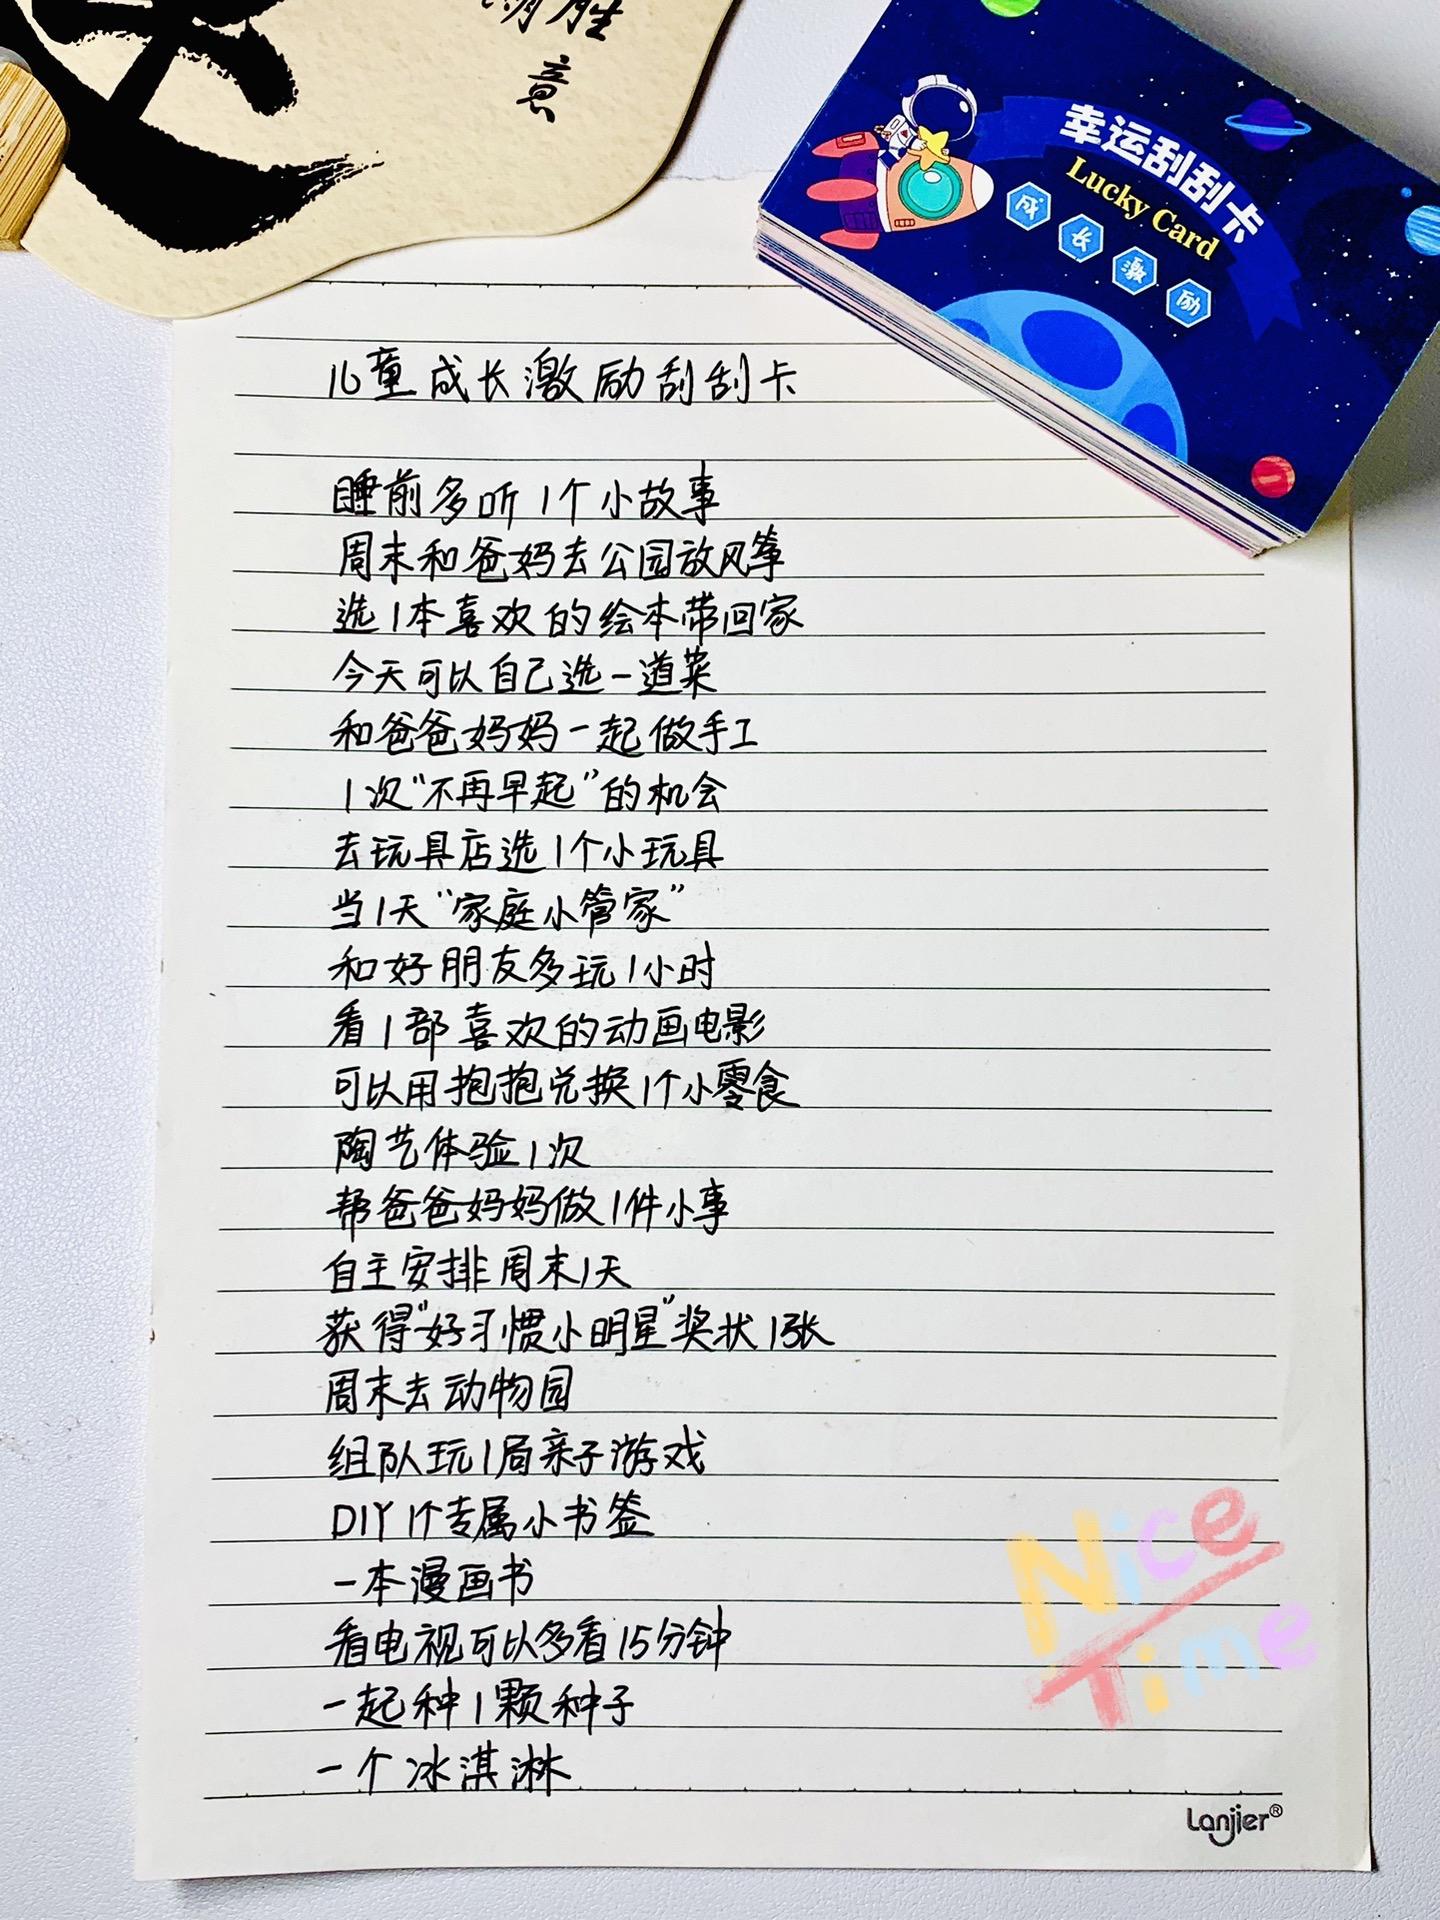 胜
意
幸运刮刮卡
Lucky Card
成长激励
儿童成长激励刮刮卡
睡前多听1个小故事
周末和爸妈去公园放风筝
选1本喜欢的绘本带回家
今天可以自己选一道菜
和爸爸妈妈一起做手工
1次“不再早起”的机会
去玩具店选1个小玩具
当1天“家庭小管家”
和好朋友多玩1小时
看1部喜欢的动画电影
可以用抱抱兑换1个小零食
陶艺体验1次
帮爸爸妈妈做1件小事
自主安排周末1天
获得“好习惯小明星”奖状1张
周末去动物园
组队玩1局亲子游戏
DIY 1个专属小书签
一本漫画书
看电视可以多看15分钟
一起种1颗种子
一个冰淇淋
Nice
Time
Lanjier®